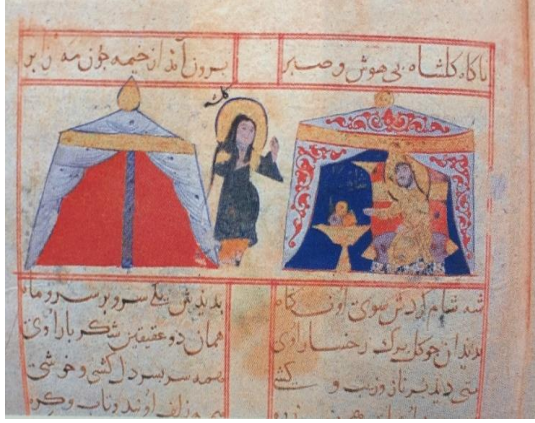 ناکاه کلشاه بی هوش و صبر برون آمد از خیمه جون مه ز ابر
شه شام کردش سوی او نکاه بدیدش یکی سرو بر سرو ماه
بدید آن جو کل برک رخسار اوی همان دو عقیقین شکر بار اوی
بتی دید پر ناز و زیب و کشی همه سر بسر دل کشی و خوشی
زلف او بند و تاب و کره